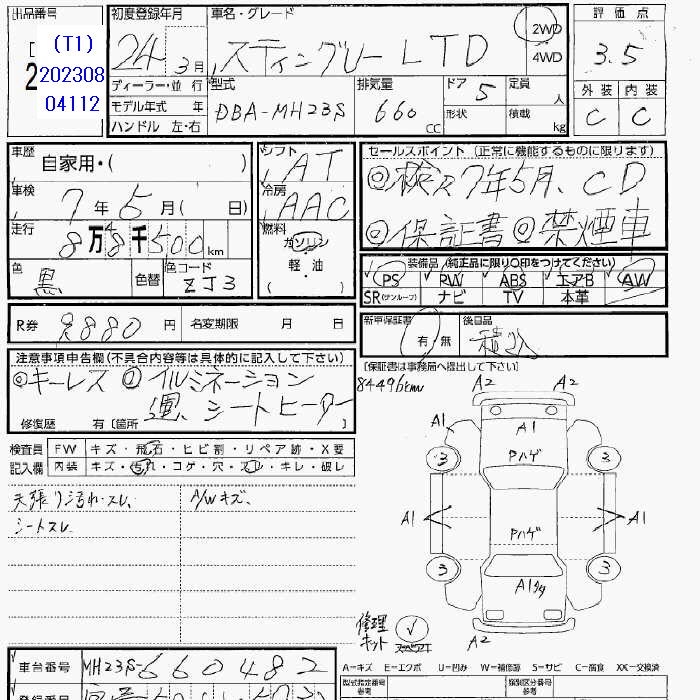 出品番号
(T1)
202308
04112
初度登録年月
24 3月
車名・グレード
スティングレー LTD
2WD
4WD
評価点
3.5
ディーラー・並行
モデル年式 年
ハンドル 左・右
型式
DBA-MH23S
排気量
660 CC
ドア 5
形状
定員 人
積載 kg
外装 内装
C C
車歴
自家用・( )
車検
7年5月( 日)
走行
8万8千500km
色
黒
色替
色コード
ZJ3
シフト
AT
冷房
AAC
燃料
ガソリン
軽・油
セールスポイント (正常に機能するものに限ります)
◎検R7年5月、CD
◎保証書◎禁煙車
装備品(純正品に限り○印をつけてください)
PS RW ABS エアB AW
SR(サンルーフ) ナビ TV 本革
R券 8880円 名変期限 月 日
新車保証書
有・無
後日品
積込
[保証書は事務局へ提出して下さい]
注意事項申告欄(不具合内容等は具体的に記入して下さい)
◎キーレス ◎イルミネーション
運、シートヒーター
修復歴 有[箇所 ]
84496km
検査員
記入欄
FW キズ・飛石・ヒビ割・リペア跡・X要
内装 キズ・汚れ・コゲ・穴・スレ・キレ・破レ
天張り汚れ・スレ、 A/Wキズ、
シートスレ
A2 A2
A1 A1
Pハゲ
3 3
A1 A1
Pハゲ
3 3
A1
修理
キット
A2
A=キズ E=エクボ U=凹み W=補修跡 S=サビ C=腐食 XX=交換済
車台番号 MH23S-660482
登録番号
型式指定番号
参考
類別区分番号
参考